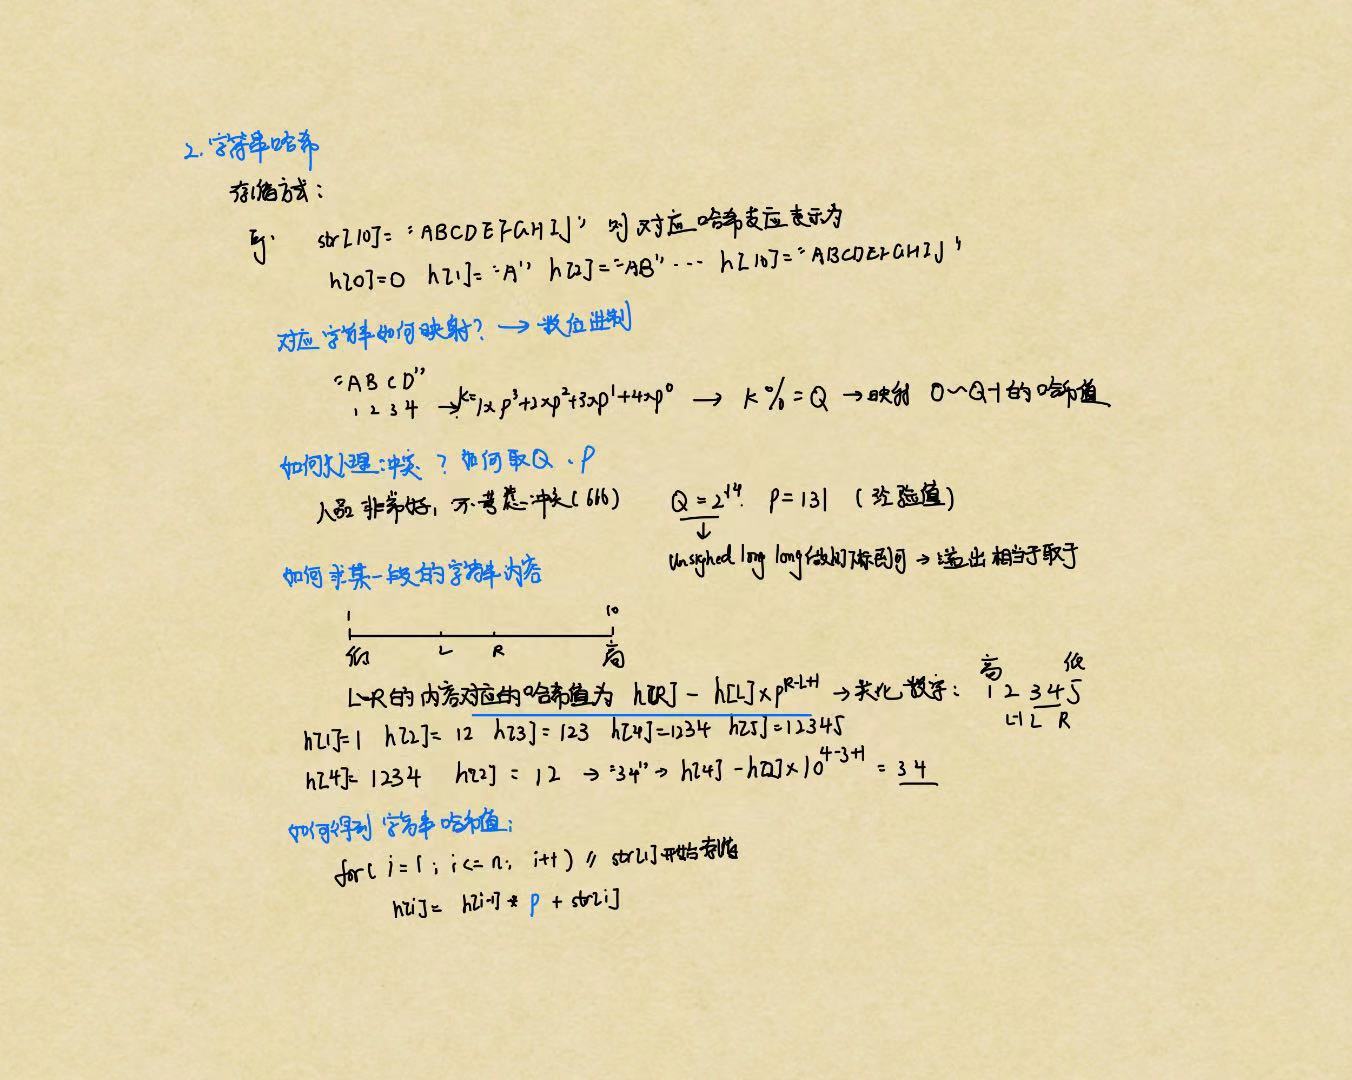 2. 字符串哈希
存储方式：
Eg. str[10]= "ABCDEFGHIJ" 则 对应哈希表应表示为
h[0]=0 h[1]="A" h[2]="AB" ··· h[10]="ABCDEFGHIJ"
对应字符串如何映射？→ 数位进制
"ABCD"
1 2 3 4 → K=1×p³+2×p²+3×p¹+4×p⁰ → K%=Q → 映射 0~Q-1的哈希值
如何处理冲突？如何取Q、P
人品非常好，不考虑冲突(666) Q = 2 P=131 (经验值)
↓
unsigned long long 即可 → 溢出相当于取于
如何求某一段的字符串内容
1 10
低 L R 高
L~R的内容对应的哈希值为 h[R] - h[L]×p^{R-L+1} → 类比数字：1 2 3 4 5
高 低
L-1 L R
h[1]=1 h[2]= 12 h[3]= 123 h[4]=1234 h[5]=12345
h[4]= 1234 h[2] = 12 → "34" → h[4] - h[2]×10^{4-3+1} = 34
如何得到字符串哈希值：
for( i=1; i<=n; i++) // str[1]开始存值
h[i]= h[i-1] * p + str[i]